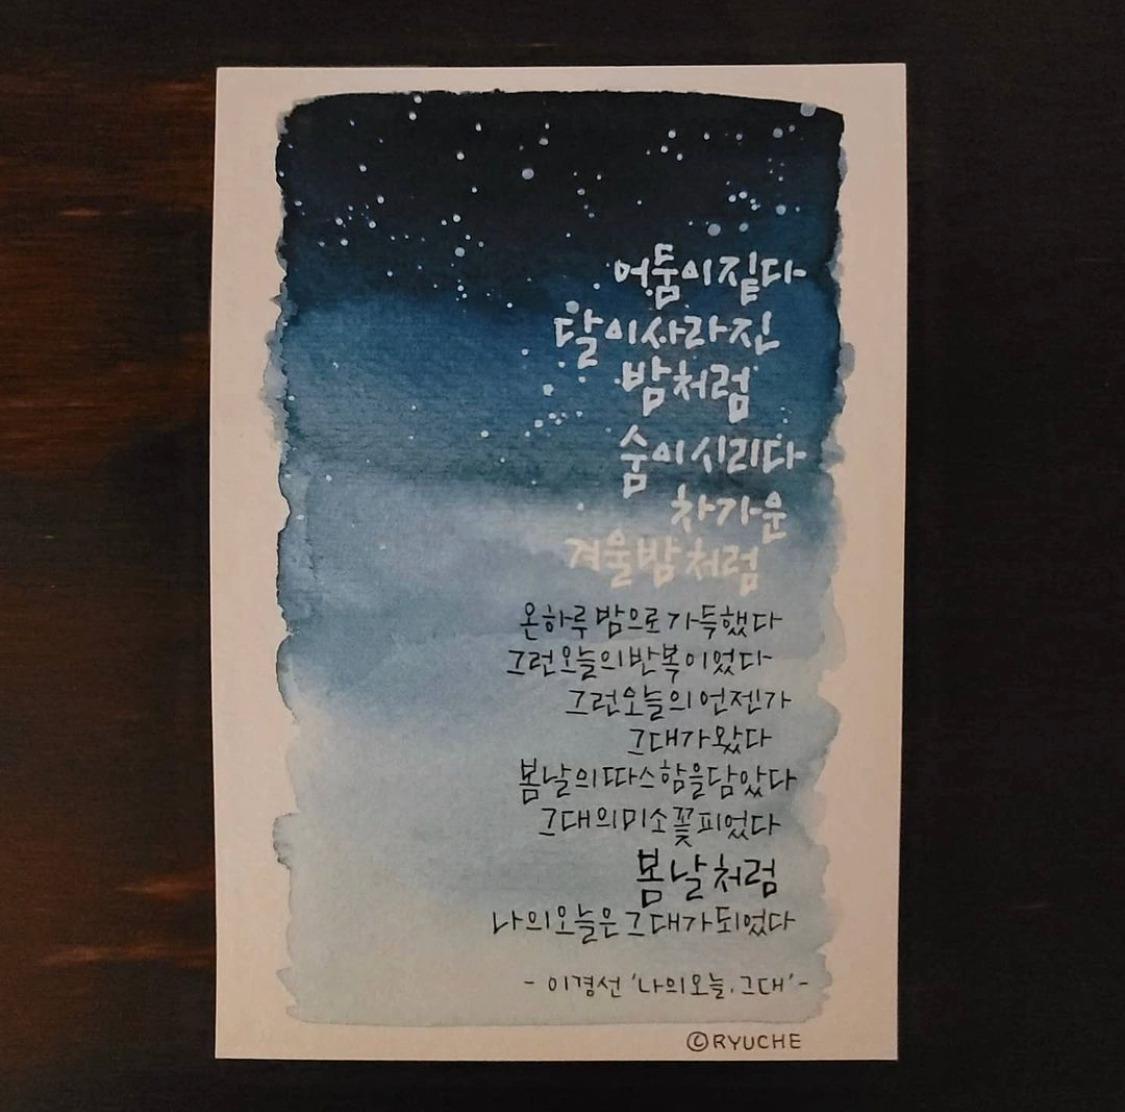 어둠이 짙다
달이 사라진
밤처럼
숨이 시리다
차가운
겨울밤처럼
온하루 밤으로 가득했다
그런 오늘의 반복이었다
그런 오늘의 언젠가
그대가 왔다
봄날의 따스함을 담았다
그대의 미소 꽃 피었다
봄날처럼
나의 오늘은 그대가 되었다
- 이경선 '나의 오늘, 그대' -
©RYUCHE